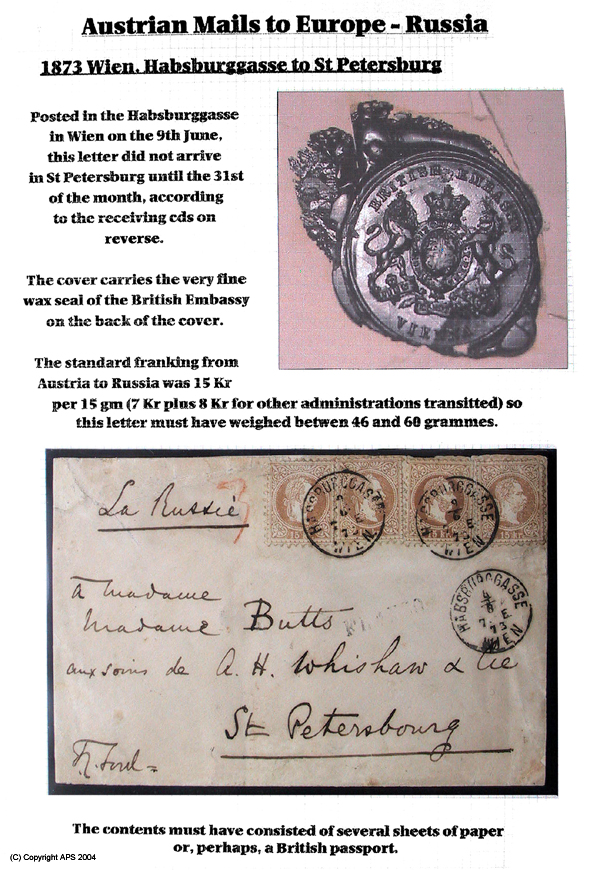 Austrian Mails to Europe - Russia
1873 Wien. Habsburggasse to St Petersburg
Posted in the Habsburggasse
in Wien on the 9th June,
this letter did not arrive
in St Petersburg until the 31st
of the month, according
to the receiving cds on
reverse.
The cover carries the very fine
wax seal of the British Embassy
on the back of the cover.
The standard franking from
Austria to Russia was 15 Kr
per 15 gm (7 Kr plus 8 Kr for other administrations transitted) so
this letter must have weighed betwen 46 and 60 grammes.
BRITISH EMBASSY
La Russie
HABSBURGGASSE
WIEN
HABSBURGGASSE
WIEN
HABSBURGGASSE
WIEN
A Madame
Madame Butts
aux soins de A. H. Whishaw & Cie
St Petersbourg
The contents must have consisted of several sheets of paper
or, perhaps, a British passport.
(C) Copyright APS 2004